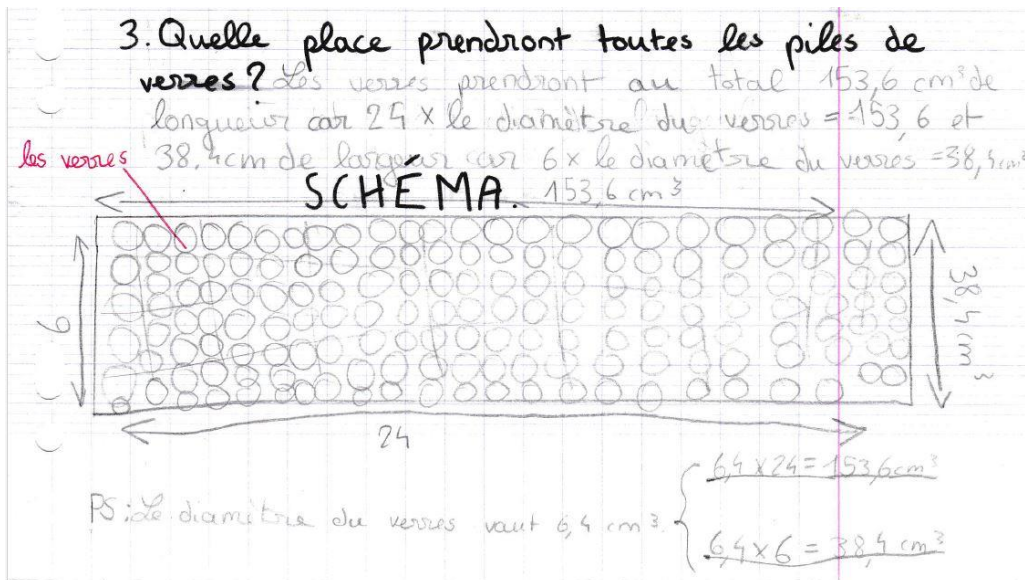 3. Quelle place prendront toutes les piles de
verres? Les verres prendront au total 153,6 cm³ de
longueur car 24 x le diamètre du verres = 153,6 et
38,4cm de largeur car 6 x le diamètre du verres = 38,4cm³
les verres
SCHÉMA. 153,6 cm³
6
38,4 cm³
24
6,4 x 24 = 153,6cm³
PS: Le diamètre du verres vaut 6,4 cm³.
6,4 x 6 = 38,4 cm³